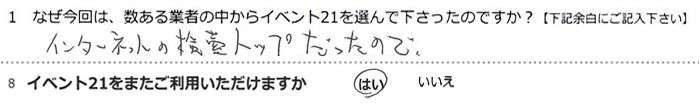 1 なぜ今回は、数ある業者の中からイベント21を選んで下さったのですか？【下記余白にご記入下さい】
インターネットの検索トップだったので、
8 イベント21をまたご利用いただけますか はい いいえ